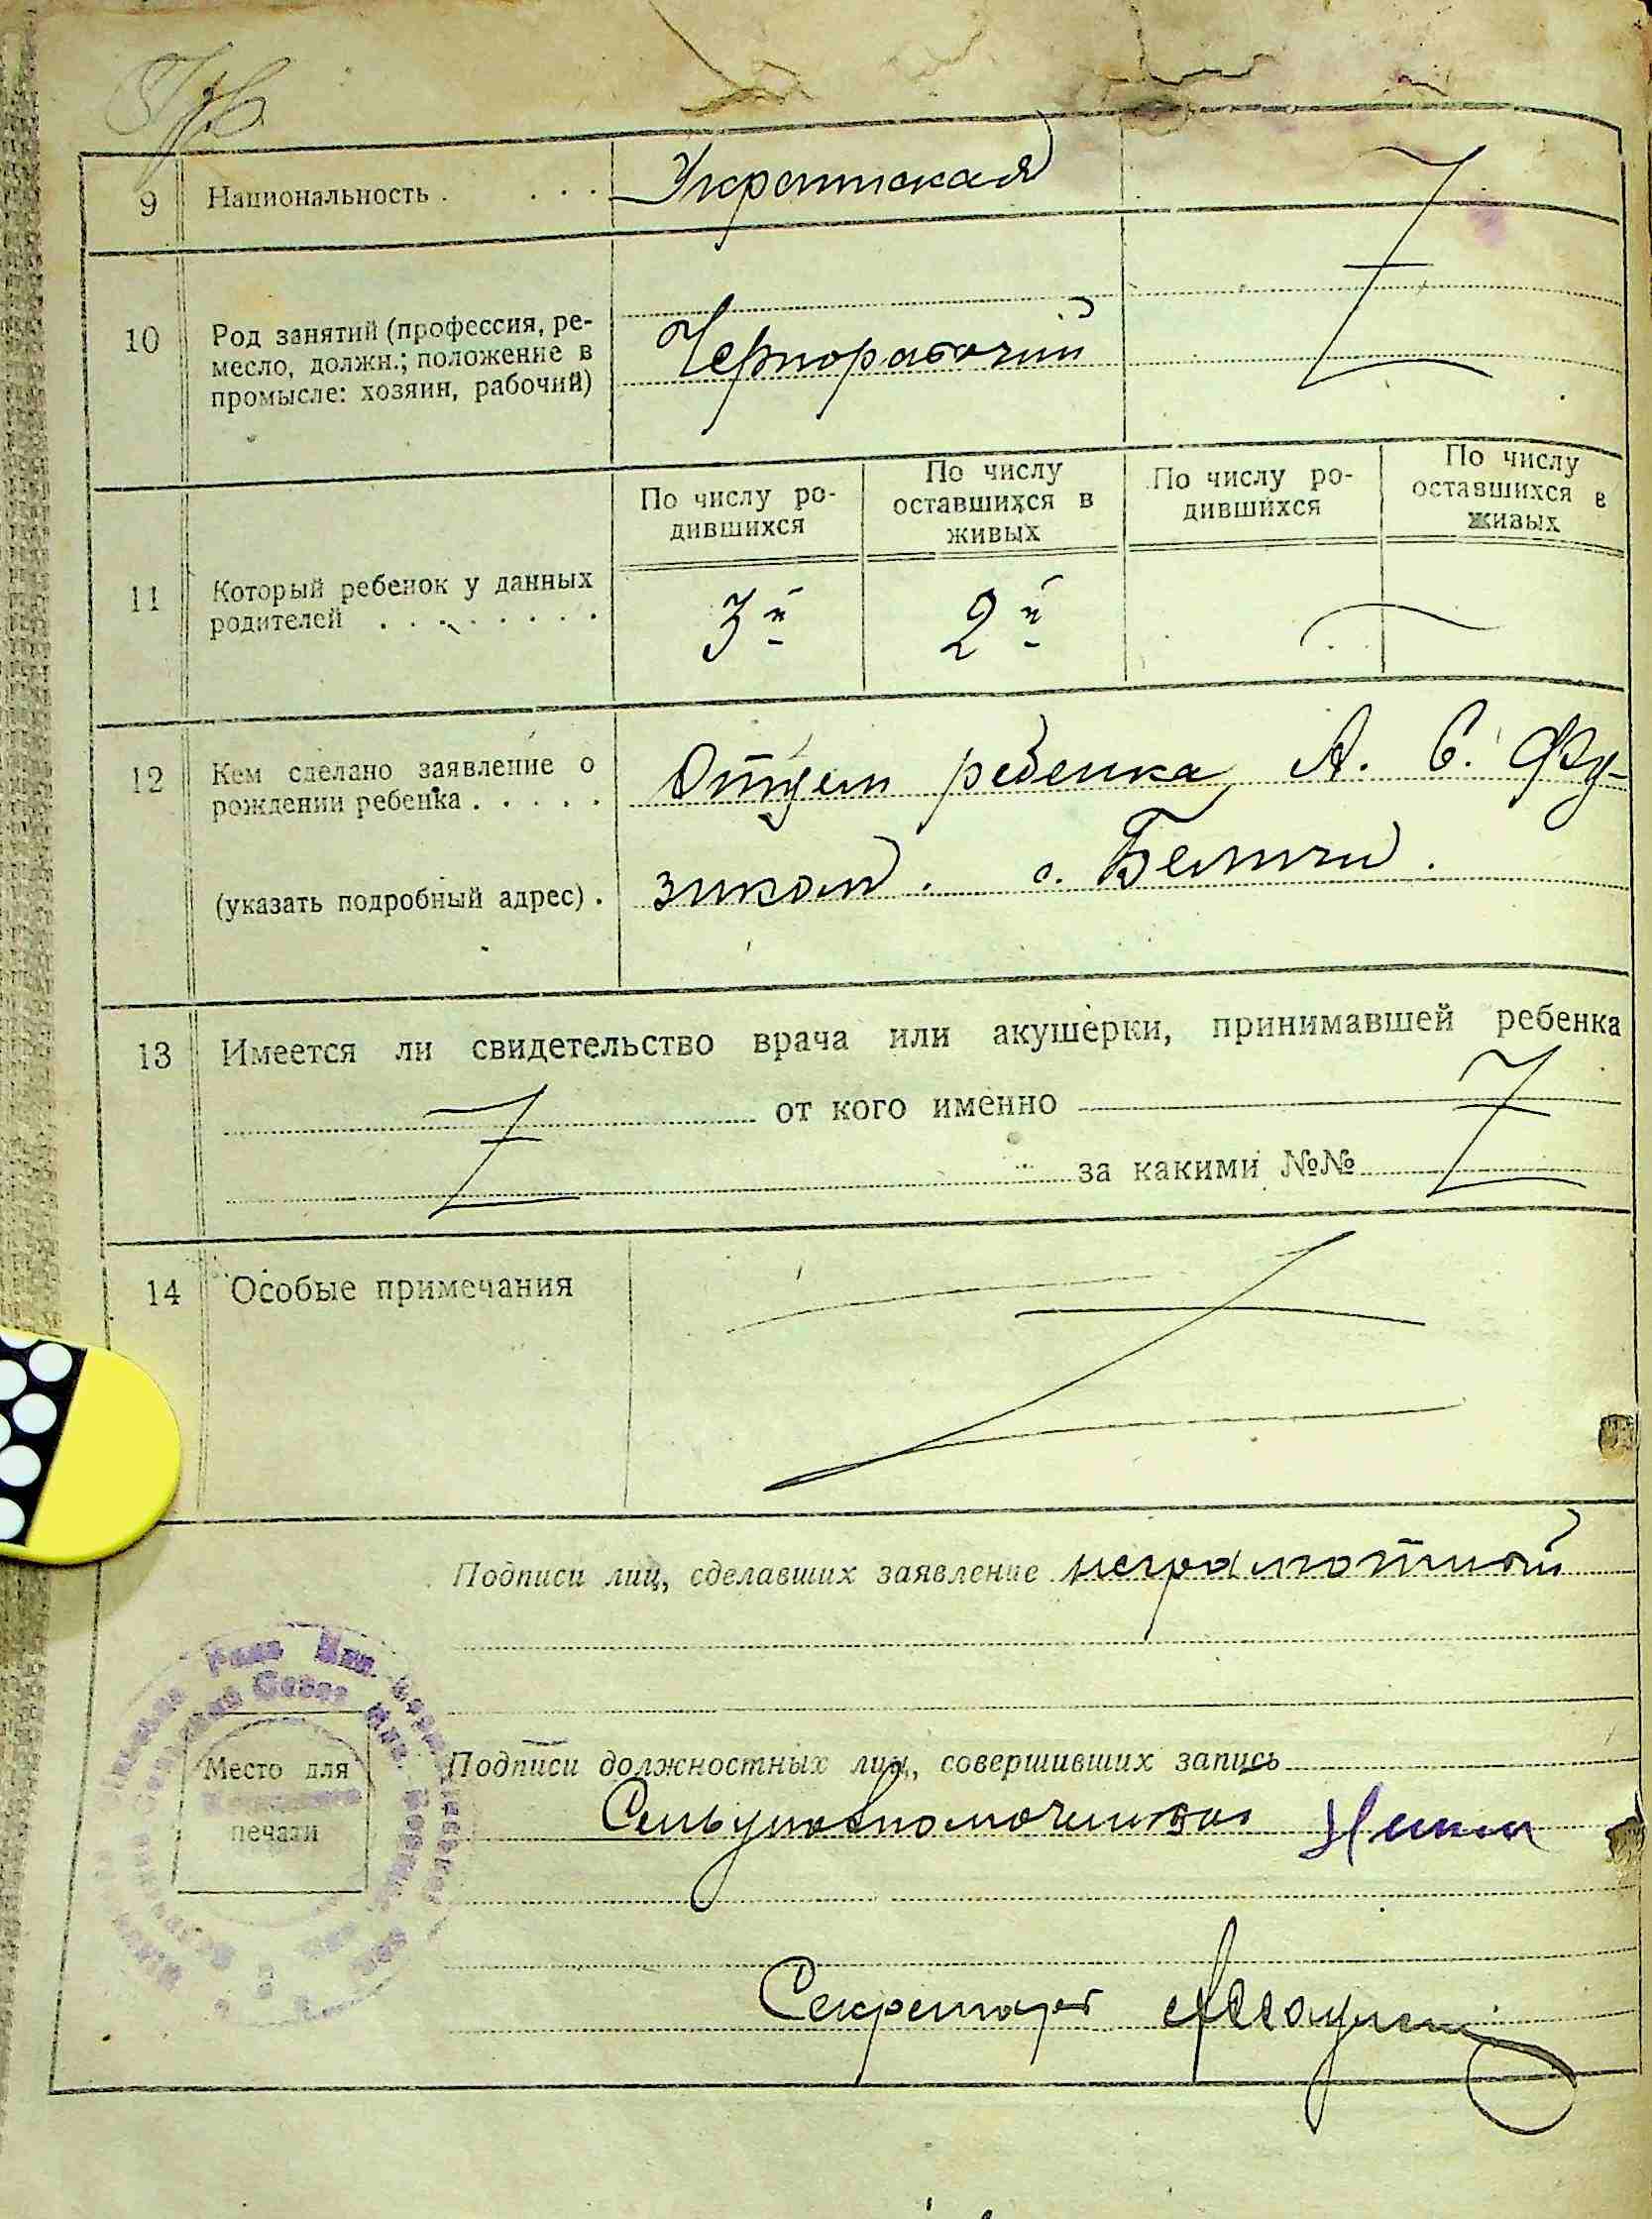 9 Национальность . . . . Украинская
10 Род занятий (профессия, ре-
месло, должн.; положение в
промысле: хозяин, рабочий)
Чернорабочий
По числу ро-
дившихся
По числу
оставшихся в
живых
По числу ро-
дившихся
По числу
оставшихся в
живых
11 Который ребенок у данных
родителей . . . . . . . .
3й 2й
12 Кем сделано заявление о
рождении ребенка . . . . .
Отцем ребенка А. С. Фу-
(указать подробный адрес) .
зиком. с. Беличи.
13 Имеется ли свидетельство врача или акушерки, принимавшей ребенка
от кого именно
за какими №№
14 Особые примечания
Подписи лиц, сделавших заявление неграмотный
Место для
печати
Подписи должностных лиц, совершивших запись
Сельуповномоченный
Секретарь